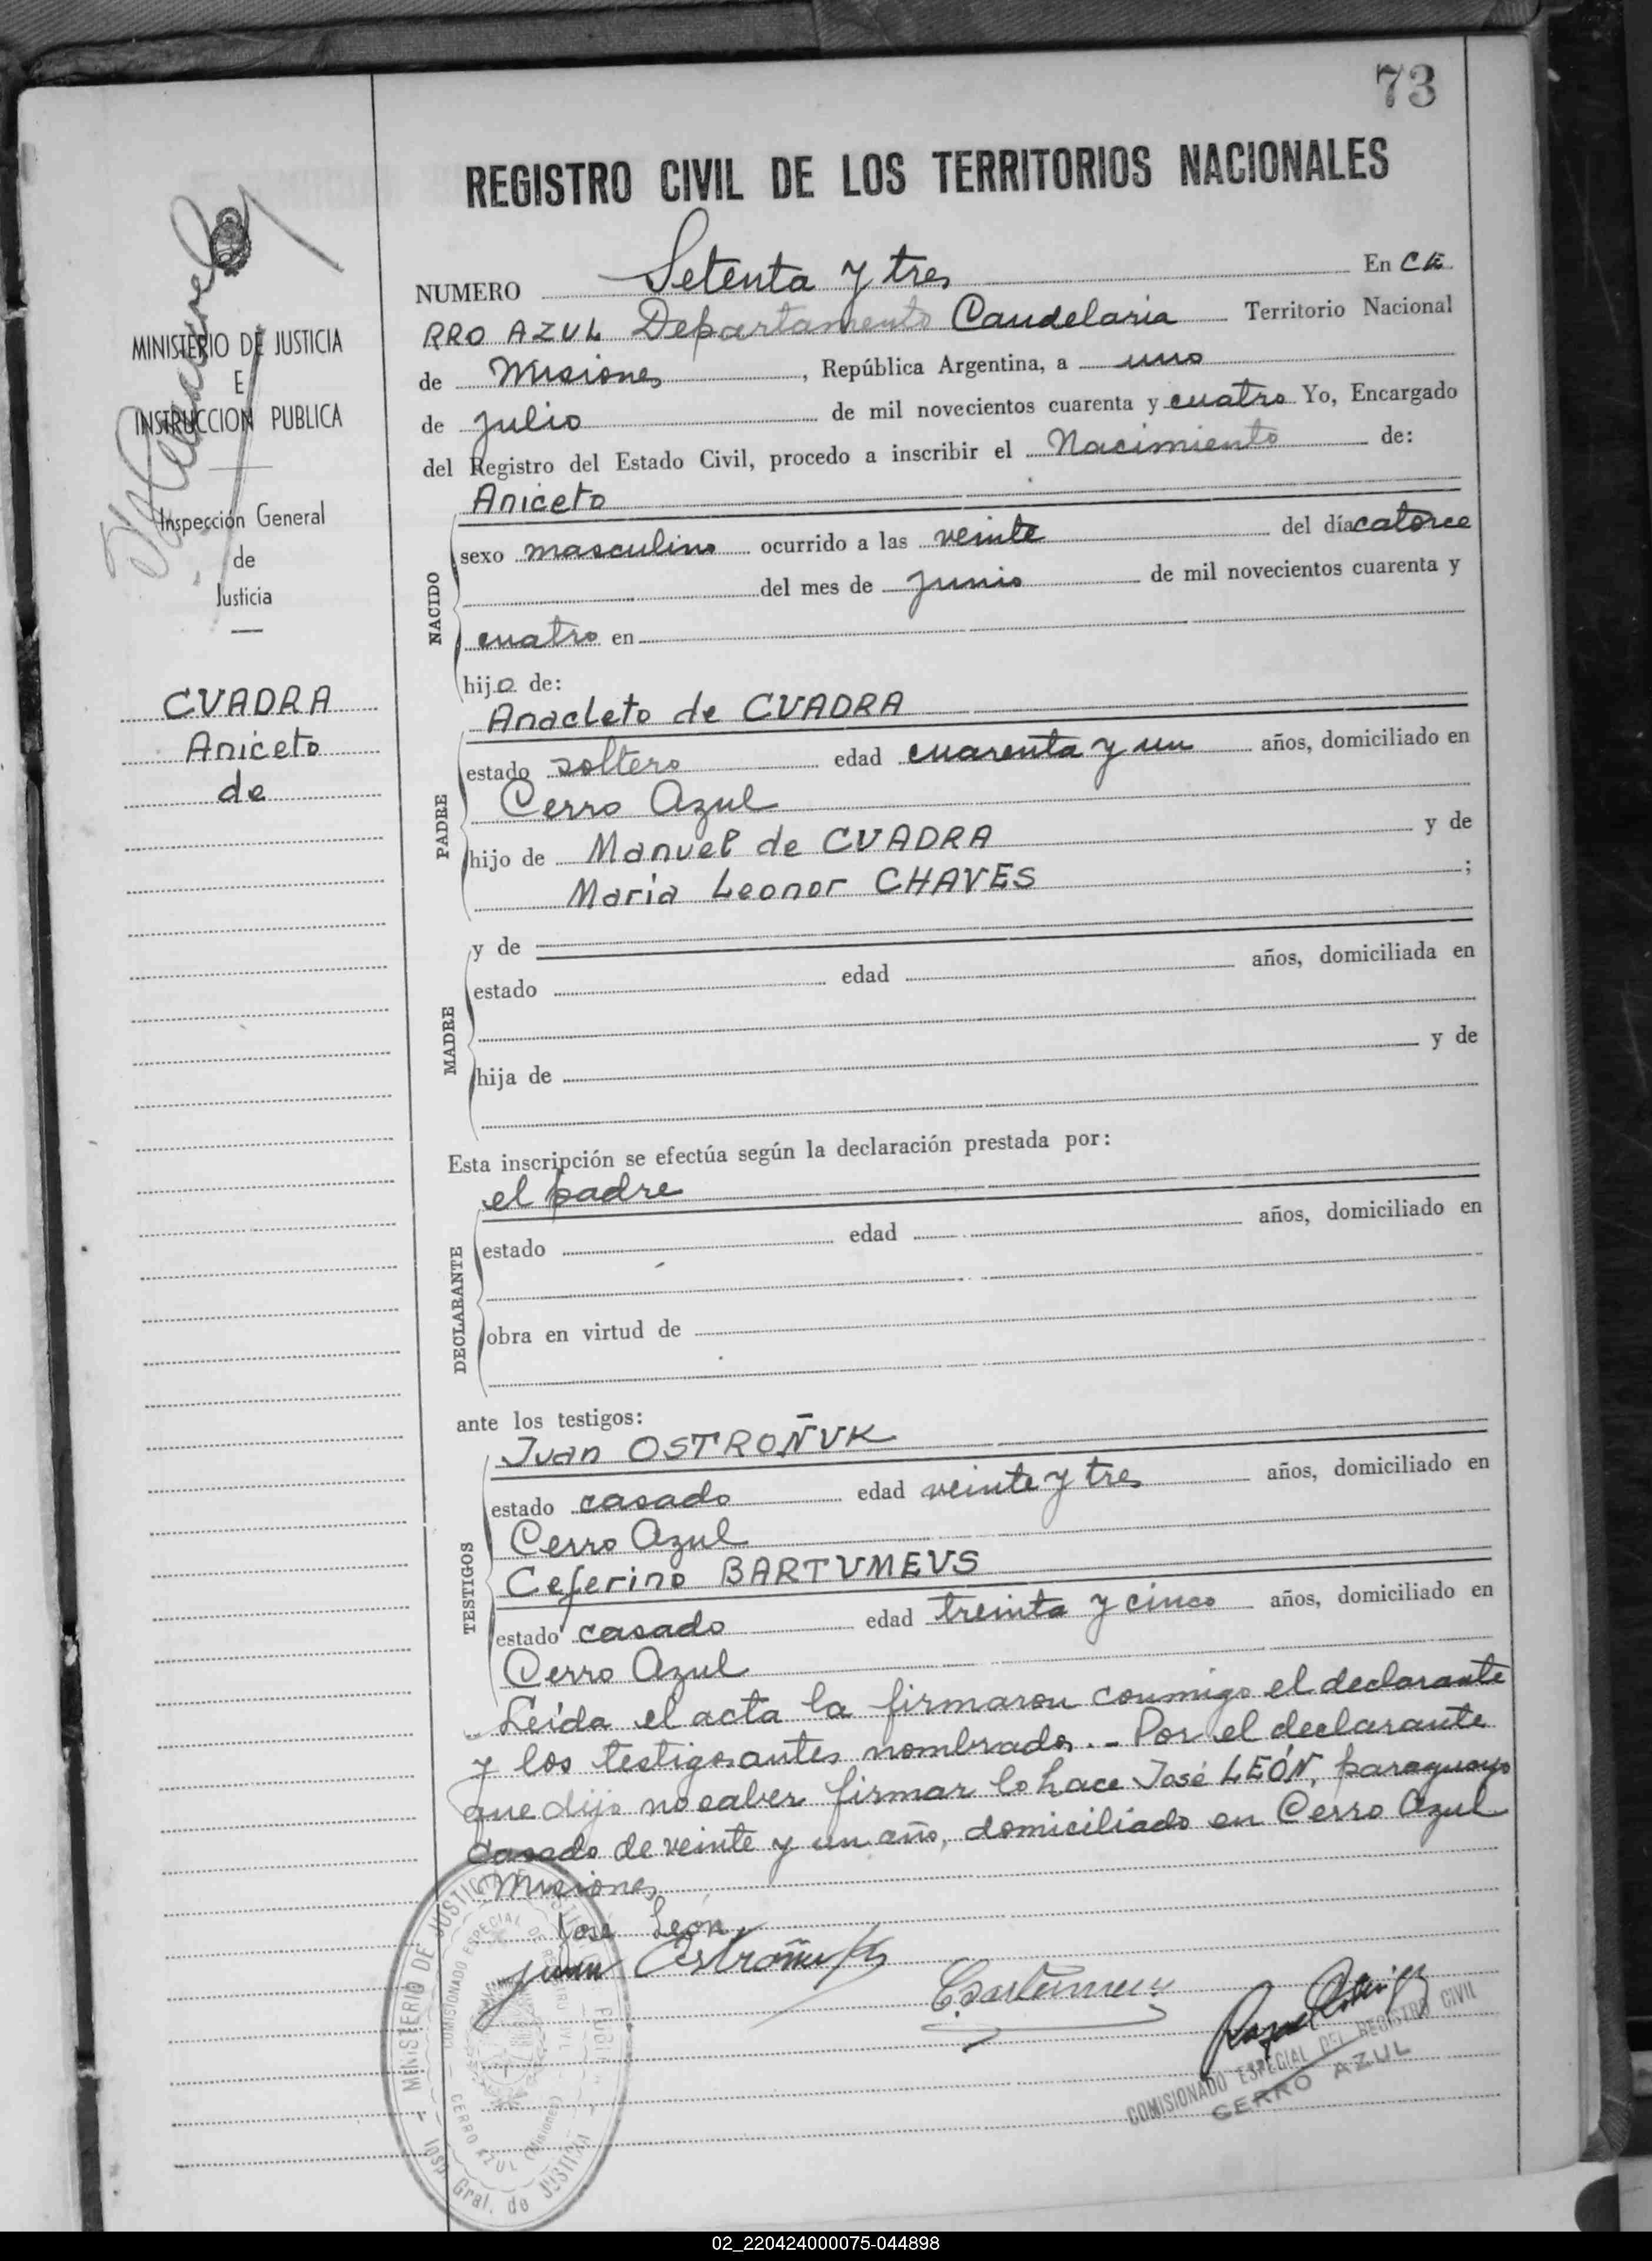 73
REGISTRO CIVIL DE LOS TERRITORIOS NACIONALES
NUMERO Setenta y tres En CE
RRO AZUL Departamento Candelaria Territorio Nacional
de Misiones, República Argentina, a uno
de julio de mil novecientos cuarenta y cuatro Yo, Encargado
del Registro del Estado Civil, procedo a inscribir el Nacimiento de:
MINISTERIO DE JUSTICIA
E
INSTRUCCION PUBLICA
Inspección General
de
Justicia
CUADRA
Aniceto
de
NACIDO
Aniceto
sexo masculino ocurrido a las veinte del día catorce
del mes de junio de mil novecientos cuarenta y
cuatro en
hijo de:
PADRE
Anacleto de CUADRA
estado soltero edad cuarenta y un años, domiciliado en
Cerro Azul
hijo de Manuel de CUADRA y de
Maria Leonor CHAVES ;
MADRE
y de
estado edad años, domiciliada en
hija de y de
Esta inscripción se efectúa según la declaración prestada por:
el padre
DECLARANTE
estado edad años, domiciliado en
obra en virtud de
ante los testigos:
TESTIGOS
Juan OSTROÑUK
estado casado edad veinte y tres años, domiciliado en
Cerro Azul
Ceferino BARTUMEUS
estado casado edad treinta y cinco años, domiciliado en
Cerro Azul
Leída el acta la firmaron conmigo el declarante
y los testigos antes nombrados.- Por el declarante
que dijo no saber firmar lo hace José LEÓN, paraguayo
casado de veinte y un año, domiciliado en Cerro Azul
Misiones
José León
Juan Ostroñuk
C. Bartumeus
COMISIONADO ESPECIAL DEL REGISTRO CIVIL
CERRO AZUL
MINISTERIO DE JUSTICIA
COMISIONADO ESPECIAL DE REGISTRO CIVIL
CERRO AZUL (Misiones)
Insp. Gral. de JUSTICIA
02_220424000075-044898